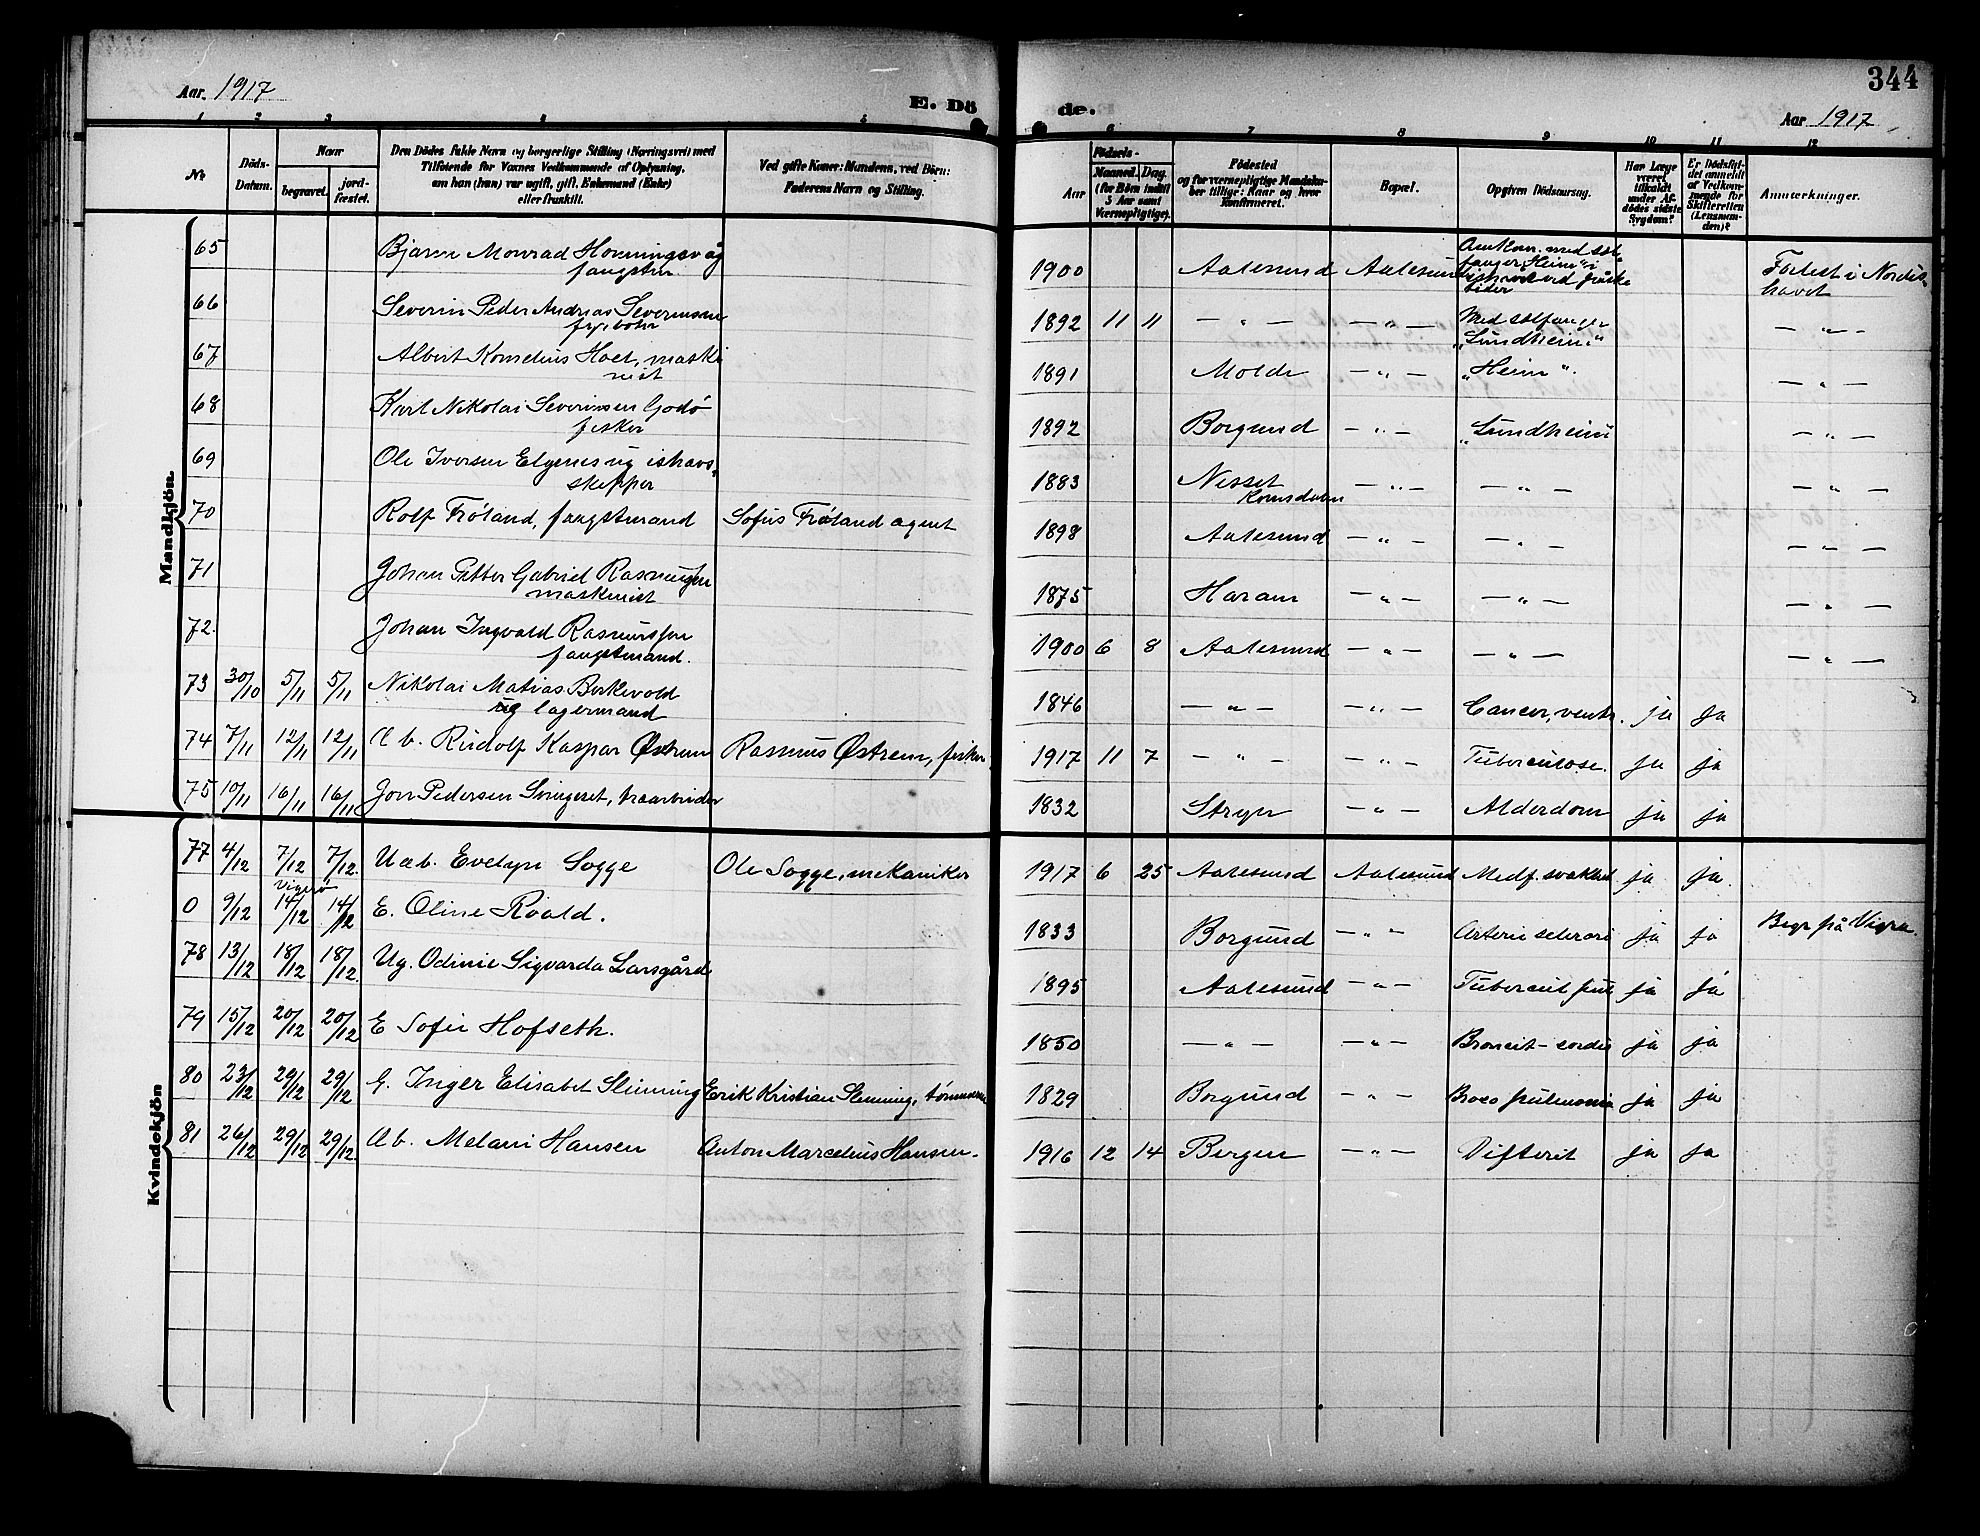 344
Aar. 1917
E. Dö
de.
Aar 1917
1 2 3 4 5
6 7 8 9 10 11 12
№
Döds-
Datum.
Naar
begravet.
jord-
fæstet.
Den Dödes fulde Navn og borgerlige Stilling (Næringsvei) med
Tilföiende for Voxnes Vedkommende af Oplysning,
om han (hun) var ugift, gift, Enkemand (Enke)
eller fraskilt.
Ved gifte Koner: Mandens, ved Börn:
Faderens Navn og Stilling.
Födsels-
Aar
Maaned. Dag.
(for Börn indtil
5 Aar samt
Værnepligtige).
Födested
og for værnepligtige Mandskaber tillige: Naar og hvor
konfirmeret.
Bopæl.
Opgiven Dödsaarsag.
Har Læge
været
tilkaldt
under Af-
dödes sidste
Sygdom?
Er Dödsfal-
det anmeldt
af Vedkom-
mende for
Skifteretten
(Lensman-
den)?
Anmærkninger.
Mandkjön.
65 Bjarne Monrad Honningsvåg 1900 Aalesund Aalesund Omkom. med sel-
fanger "Heim" i Forlist i Nordis-
havet
66 Severin Peder Andreas Severinsen
fyrböter 1892 11 11 — " — — " — Med selfanger
"Sundheim" — " —
67 Albert Kornelius Hoel, maski
nist 1891 Molde — " — "Heim". — " —
68 Karl Nikolai Severinsen Godö
fisker 1892 Borgund — " — "Sundheim" — " —
69 Ole Iversen Elgenes ug ishavs-
skipper 1883 Nesset
Romsdalen — " — — " — — " —
70 Rolf Fröland, fangstmand Sofus Fröland agent 1898 Aalesund — " — — " — — " —
71 Johan Petter Gabriel Rasmussen
maskinist 1875 Haram — " — — " — — " —
72. Johan Ingvald Rasmussen
fangstmand. 1900 6 8 Aalesund — " — — " — — " —
73 30/10 5/11 5/11 Nikolai Matias Birkevold
ug lagermand 1846 — " — — " — Cancer, ventr. ja ja
74 7/11 12/11 12/11 U b. Rudolf Kaspar Østrem Rasmus Østrem, fisker. 1917 11 7 — " — — " — Tuberculose. ja ja
75 10/11 16/11 16/11 Jon Pedersen 1832 Stryn — " — Alderdom ja ja
Kvindekjön
77 4/12 7/12 7/12. Uæb. Evelyn Sogge Ole Sogge, mekaniker 1917 6 25 Aalesund Aalesund Medf. svakhed ja ja.
0 9/12 Vigerö 14/12 14/12 E. Oline Roald. 1833 Borgund — " — Arterie sclerose ja ja Begr på Vigra.
78 13/12 18/12 18/12. Ug. Odinie Sigvarda Larsgård 1895 Aalesund — " — Tubercul pul ja ja
79 15/12 20/12 20/12 E Sofie Hofseth. 1850 — " — — " — Broncit-cordis ja ja
80 23/12 29/12 29/12 G. Inger Elisabet Slinning Erik Kristian Slinning, tömmerm 1829 Borgund — " — Bronco pulmonia ja ja
81 26/12 29/12 29/12. U b. Melani Hansen Anton Marcelius Hansen. 1916 12 14 Bergen — " — Difterit ja ja